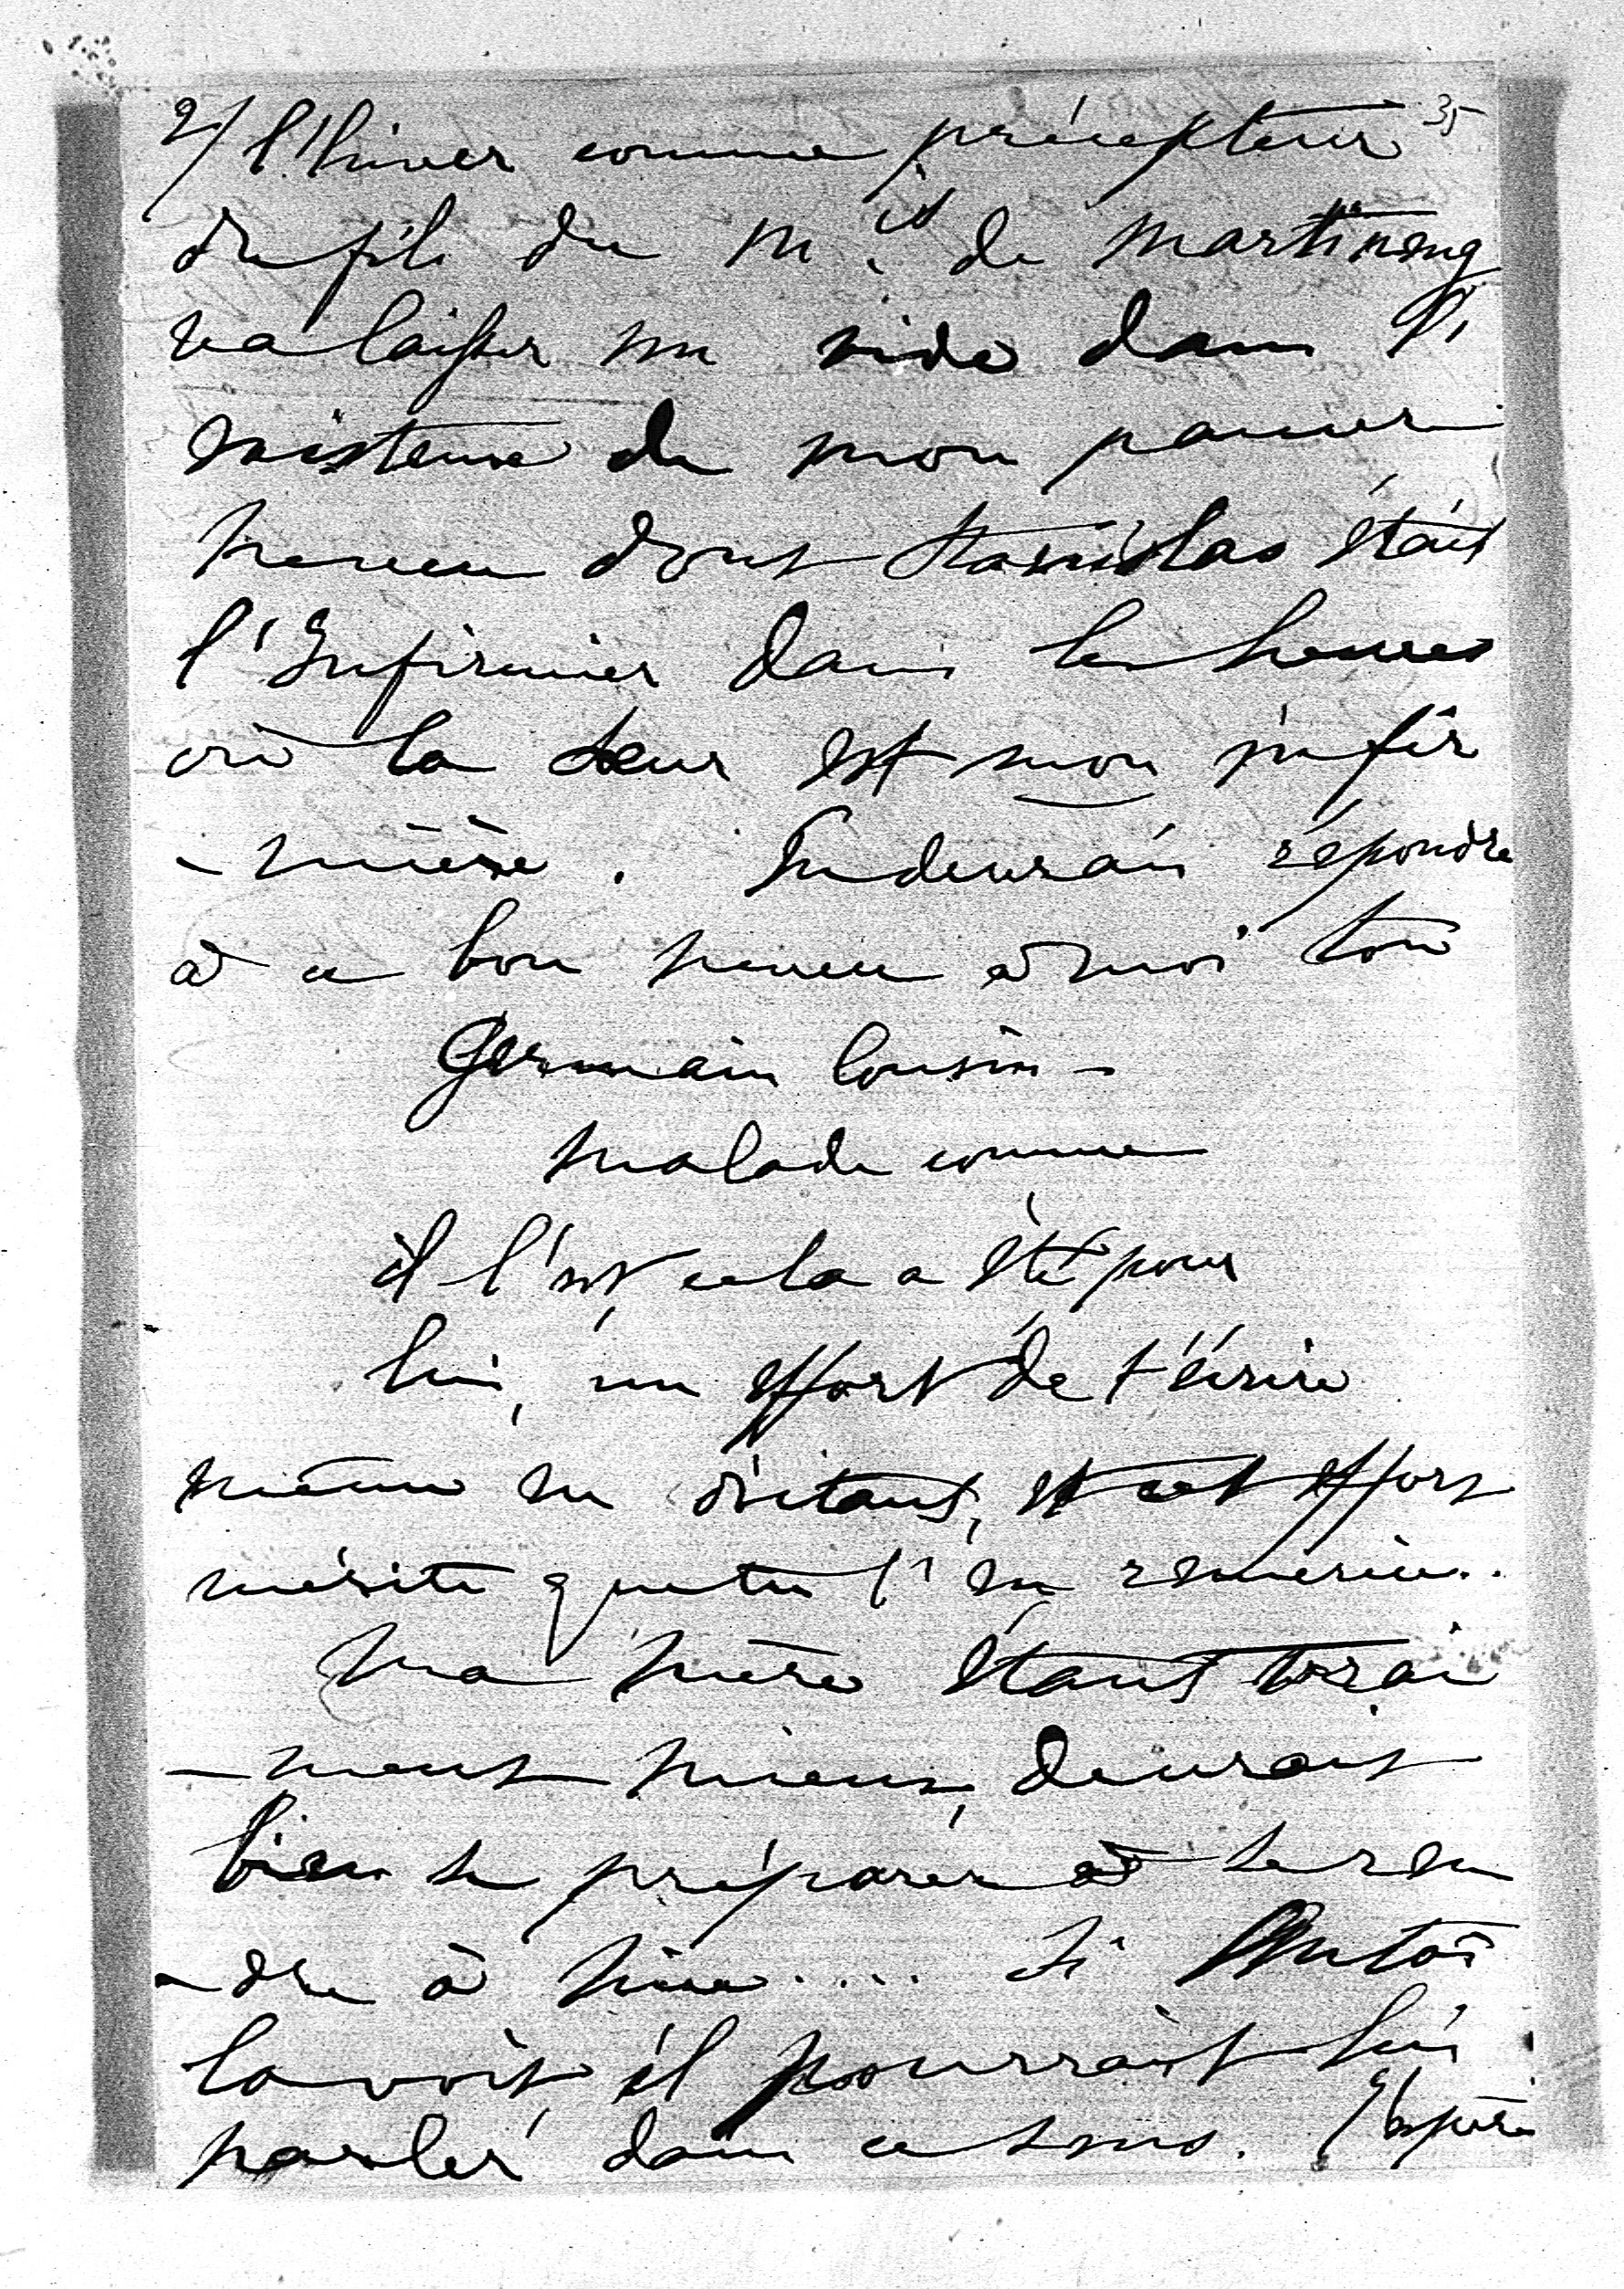 2/ l'hiver comme précepteur 35
du fils du M.is de Martineng
va laisser un vide dans l'e
xistence de mon pauvre
neveu dont Stanislas était
l'Infirmier dans les heures
où la sœur est mon infir
-mière. Tu devrais répondre
à ce bon neveu à moi ton
Germain Cousin -
Malade comme
il l'est, cela a été pour
lui, un effort de t'écrire
même en dictant, et cet effort
mérite que tu l'en remercies..
Ma mère étant vrai
-ment mieux, devrait
bien se préparer à se ren
-dre à .... Si
la voit, il pourrait lui
parler dans ce sens. J'espère